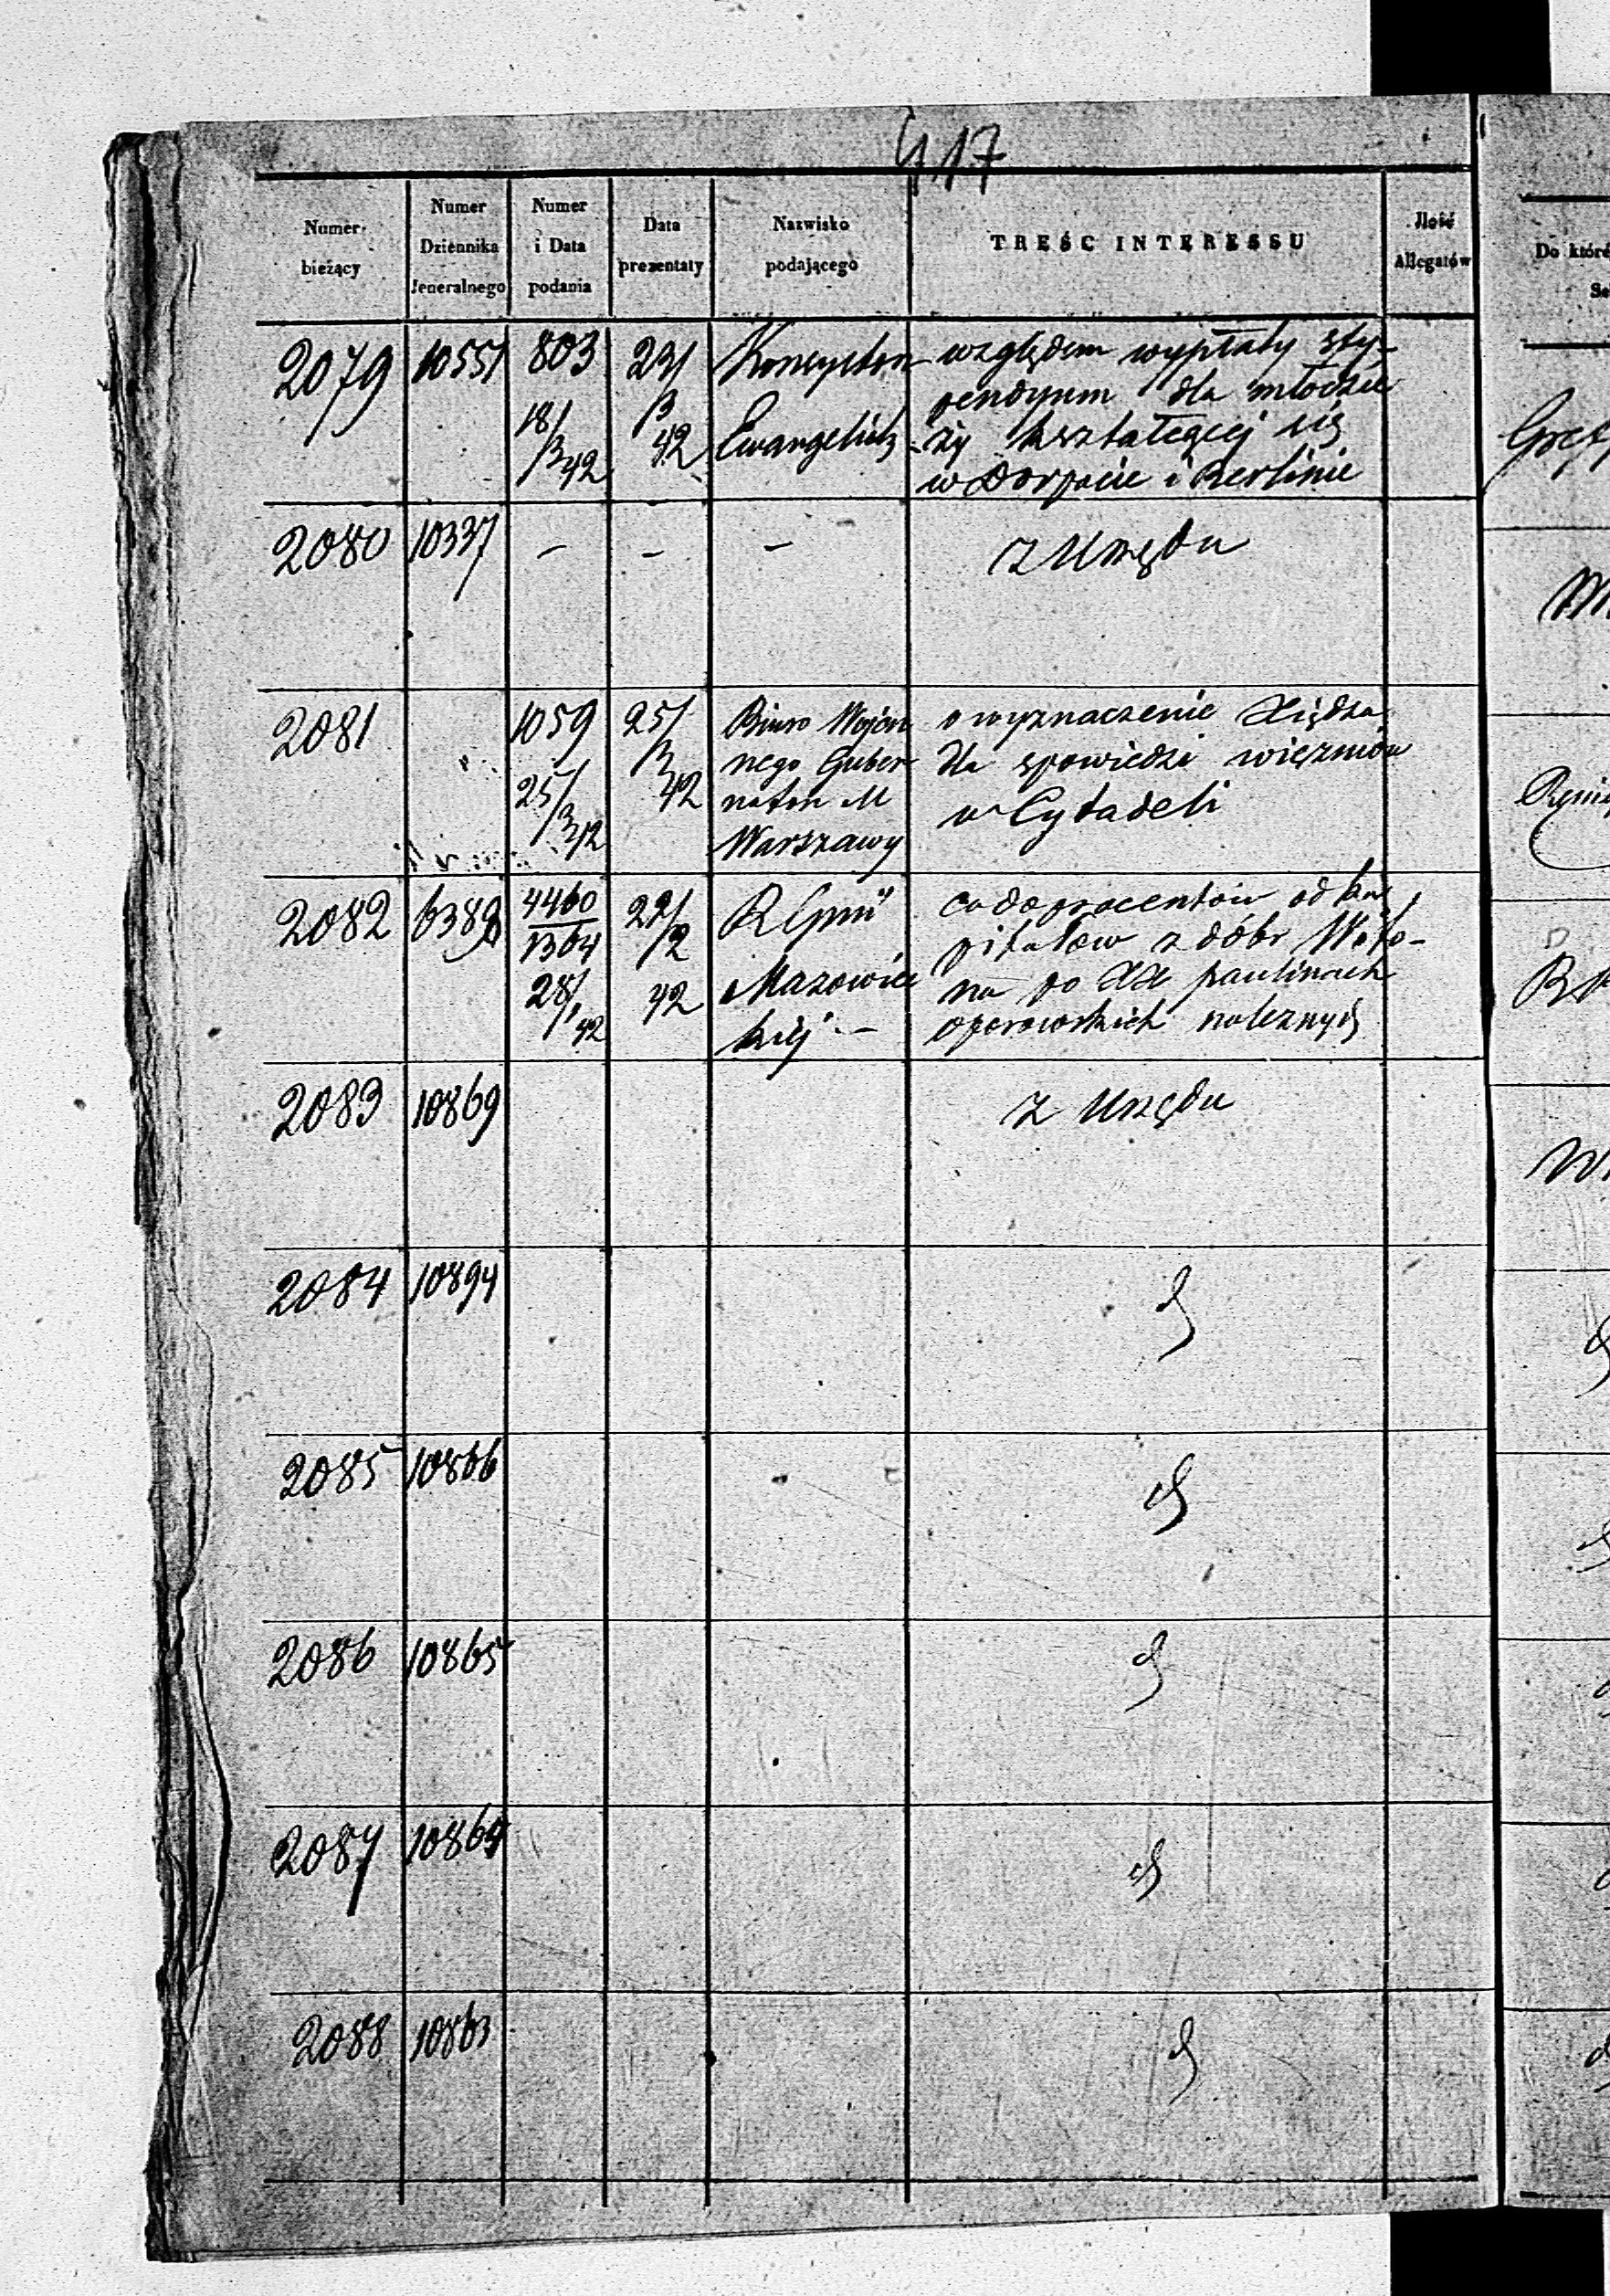 417
Numer bieżący | Numer Dziennika Jeneralnego | Numer i Data podania | Data prezentaty | Nazwisko podającego | TREŚĆ INTERESSU | Ilość Allegatów | Do które
2079 | 10551 | 803 | 23/ | Konsystor | względem wypłaty sty-
3 | pendyum dla młodzie
18/ 3 42 | 42 | Ewangelick | -ży kształcącej się
w Dorpacie i Berlinie
2080 | 10337 | – | – | – | z Urzędu
2081 | 1059 | 25/ | Biuro Wojen | o wyznaczenie Xiędza
3 | nego Guber | dla spowiedzi więzniów
25/ 3 42 | 42 | natora M | w Cytadeli
Warszawy
2082 | 6389 | 4460 | 22/ | co do procentów od ka
1364 | 2 | pitałów z dóbr
28/1 42 | 42 | Mazowiec | na po XX paulinach
kiej – | oporowskich należnych
2083 | 10869 | z Urzędu
2084 | 10894 | d
2085 | 10866 | d
2086 | 10865 | d
2087 | 10864 | d
2088 | 10863 | d